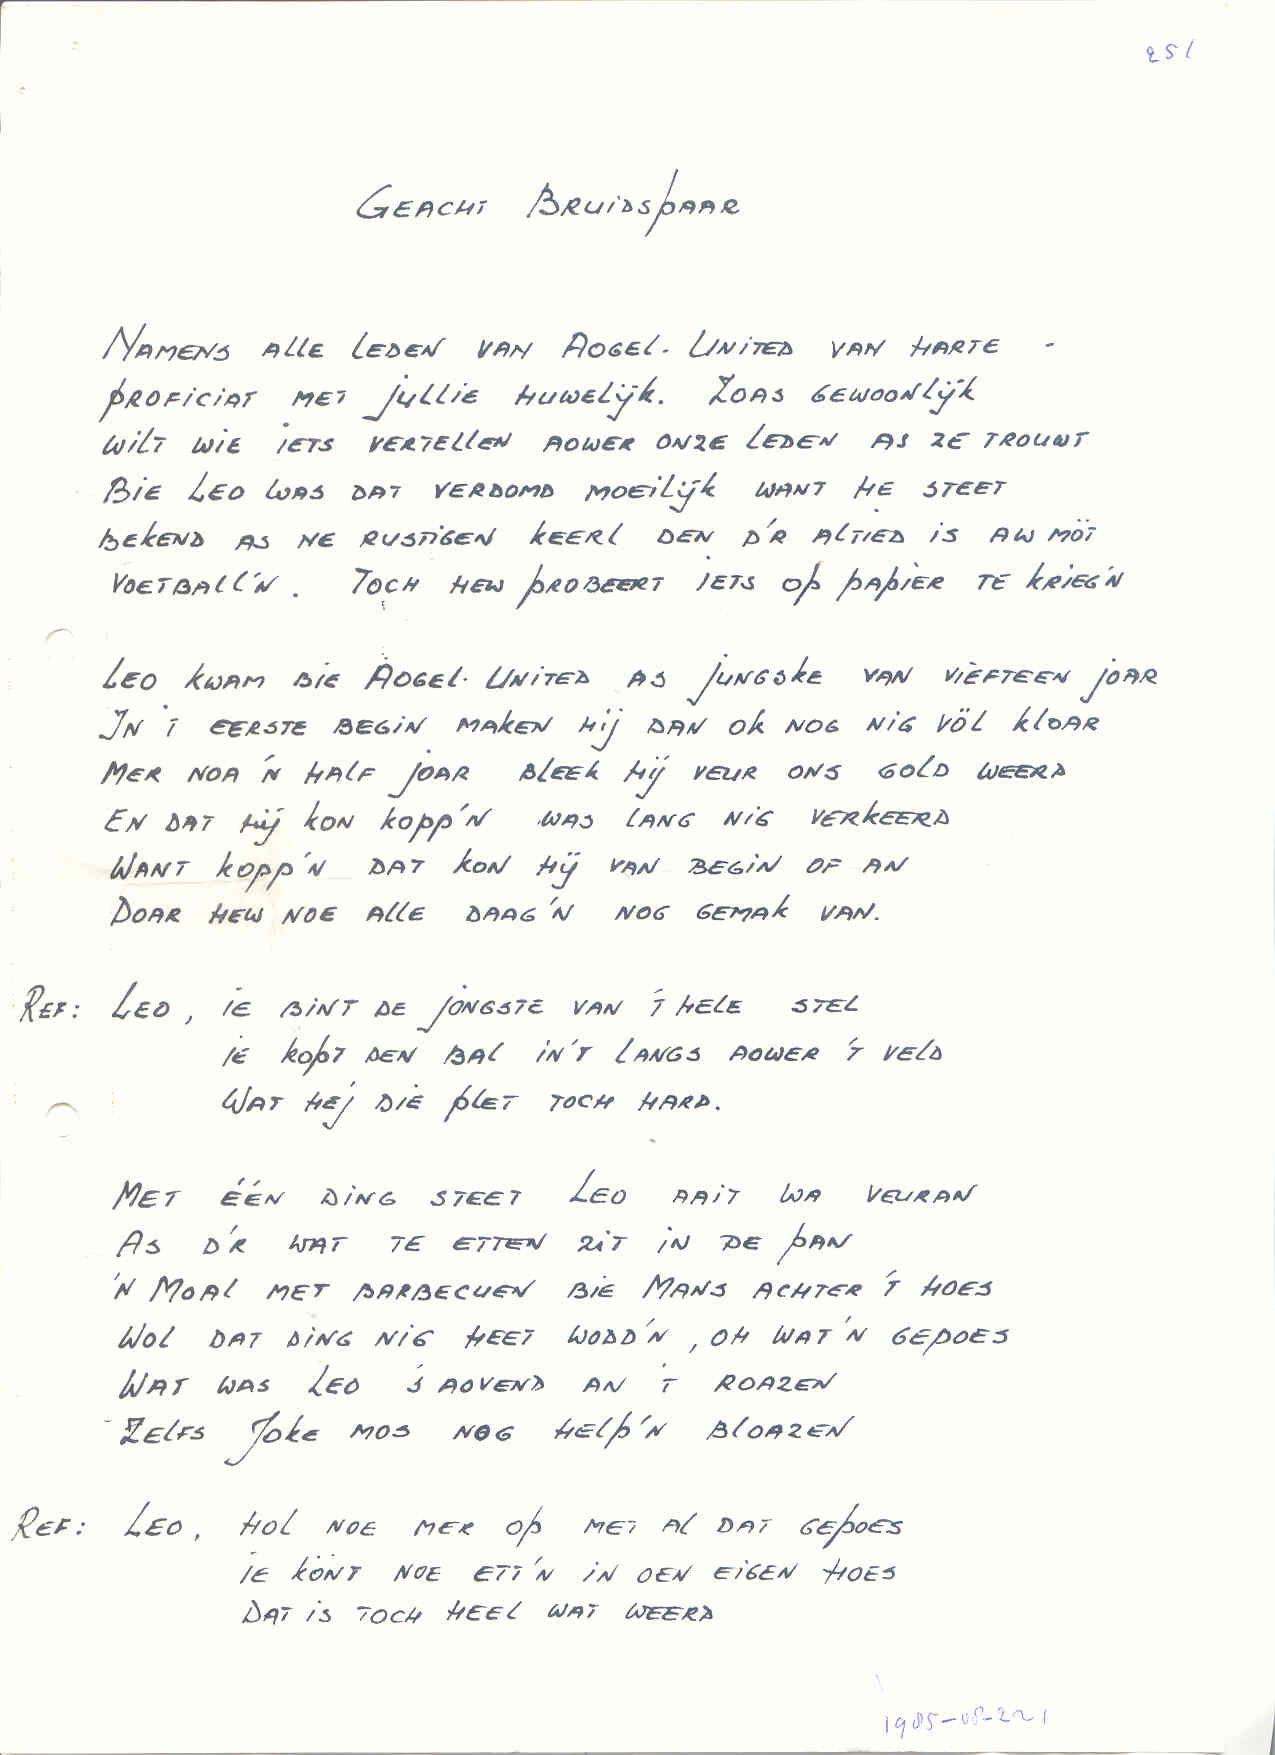 251
Geacht Bruidspaar
Namens alle leden van Aogel. United van harte -
proficiat met jullie huwelijk. Zoas gewoonlijk
wilt wie iets vertellen aower onze leden as ze trouwt
Bie Leo was dat verdomd moeilijk want he steet
bekend as ne rustigen keerl den d'r altied is aw möt
voetball'n. Toch hew probeert iets op papier te krieg'n
Leo kwam bie Aogel. United as jungske van viefteen joar
In 't eerste begin maken hij dan ok nog nig völ kloar
Mer noa 'n half joar bleek hij veur ons gold weerd
En dat hij kon kopp'n was lang nig verkeerd
Want kopp'n dat kon hij van begin of an
Doar hew noe alle daag'n nog gemak van.
Ref: Leo, ie bint de jongste van 't hele stel
ie kopt den bal in 't langs aower 't veld
Wat hej die plet toch hard.
Met één ding steet Leo aait wa veuran
As d'r wat te etten zit in de pan
'n Moal met barbecuen bie Mans achter 't hoes
Wol dat ding nig heet wodd'n, oh wat 'n gepoes
Wat was Leo 's aovend an 't roazen
Zelfs Joke mos nog help'n bloazen
Ref: Leo, hol noe mer op met al dat gepoes
ie könt noe ett'n in oen eigen hoes
Dat is toch heel wat weerd
1985-05-221